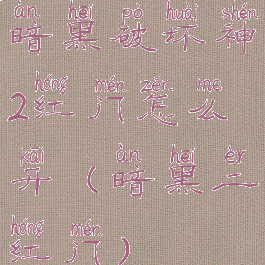 àn hēi pò huài shén
暗黑破坏神
hóng mén zěn me
2红门怎么
kāi àn hēi èr
开（暗黑二
hóng mén
红门）